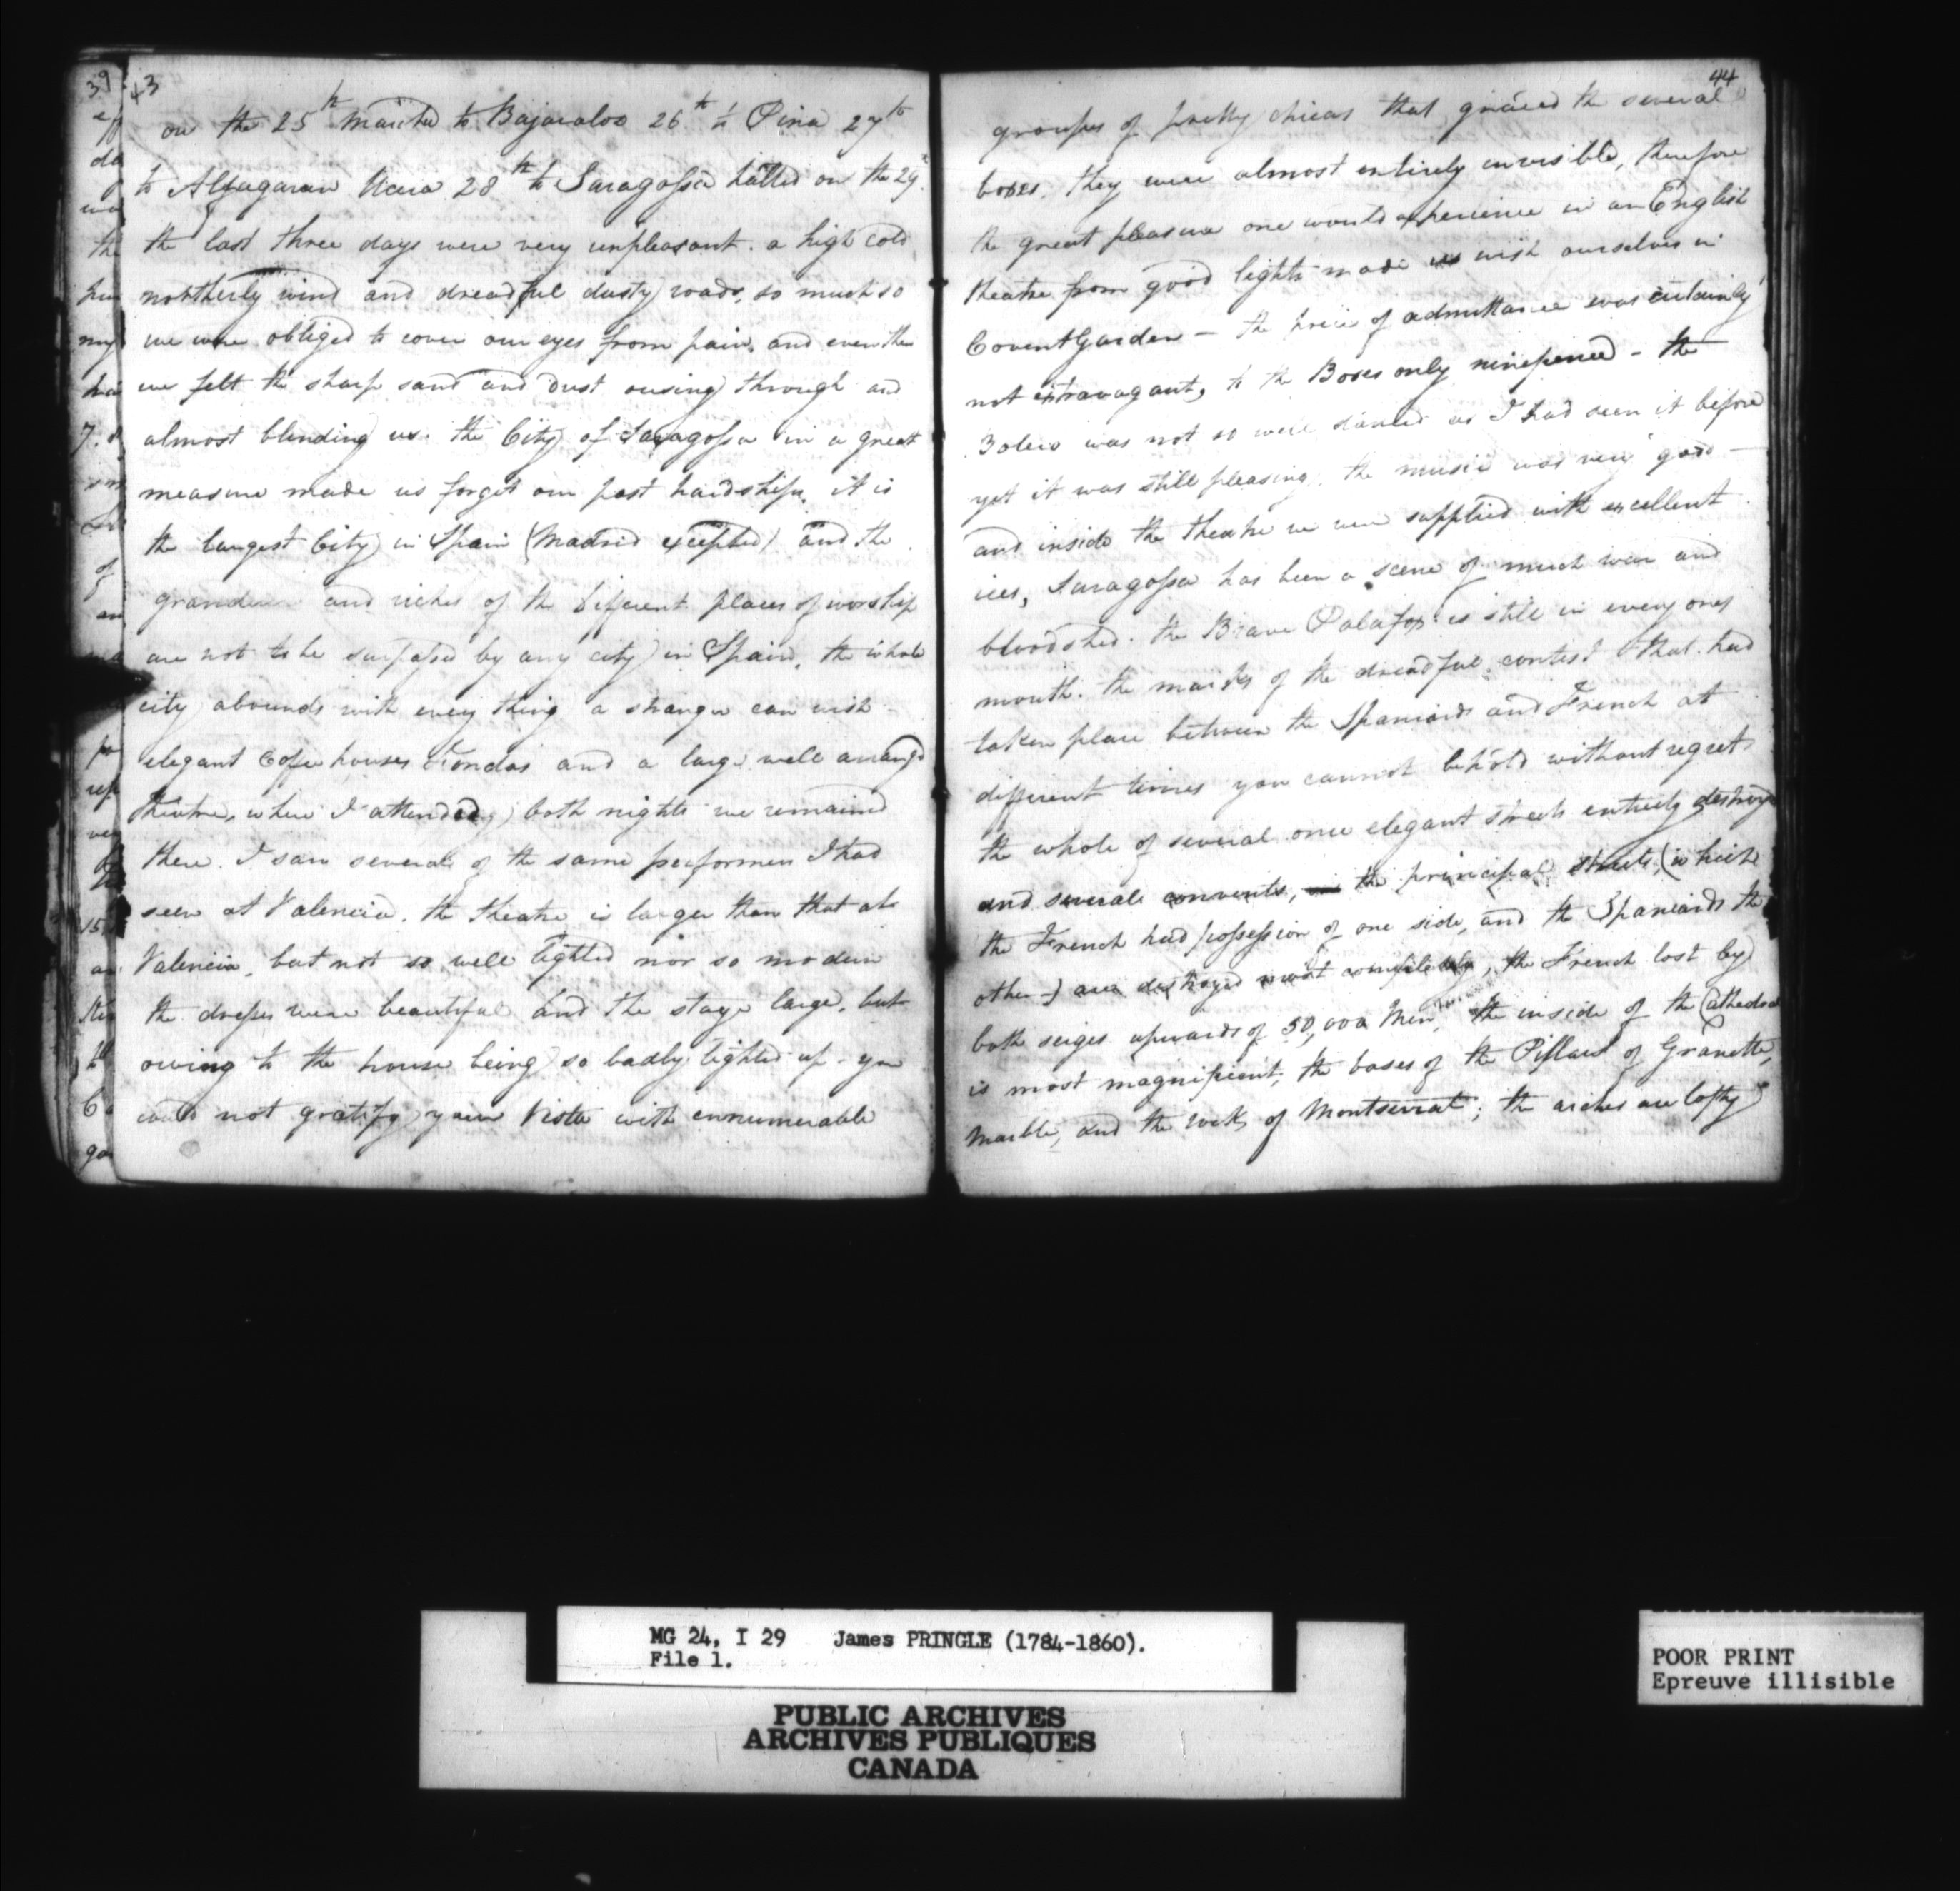 43
on the 25th Marched to Bajaraloo 26th to Pina 27th
to Alfagaran 28th to Saragossa halted on the 29.
the last three days were very unpleasant. a high cold
northerly wind and dreadful dusty roads, so much so
we were obliged to cover our eyes from pain, and even then
we felt the sharp sand and dust ousing through and
almost blinding us. the City of Saragossa in a great
measure made us forget our past hardships, it is
the largest City in Spain (Madrid excepted) and the
grandeur and riches of the different places of worship
are not to be surpassed by any city in Spain, the whole
city abounds with every thing a stranger can wish -
elegant Coffee houses Fondas and a large well arrang'd
theatre, where I attended, both nights we remained
there. I saw several of the same performers I had
seen at Valencia. the theatre is larger than that at
Valencia, but not so well lighted nor so modern
the dresses were beautiful and the stage large, but
owing to the house being so badly lighted up - you
could not gratify your Vista with ennumerable
44
groupes of pretty chicas that graced the several
boxes. they were almost entirely invisible, therefore
the great pleasure one would experience in an English
theatre from good lights made us wish ourselves in
Covent Garden - the price of admittance was certainly
not extravagant, to the Boxes only ninepence - the
Bolero was not so well danced as I had seen it before
yet it was still pleasing. the music was very good -
and inside the theatre we were supplied with excellent
ices, Saragossa has been a scene of much war and
bloodshed. the Brave Palafox is still in every ones
mouth. the marks of the dreadful contest that had
taken place between the Spaniards and French at
different times you cannot behold without regret
the whole of several once elegant streets entirely destroy'd
and several convents, the principal streets, (which
the French had possession of one side, and the Spaniards the
other -) are destroyed most completely, the French lost by
both seiges upwards of 50,000 Men, the inside of the Cathedral
is most magnificent, the bases of the Pillars of Granette,
Marble, and the rocks of Montserrat; the arches are lofty
MG 24, I 29 James PRINGLE (1784-1860).
File 1.
PUBLIC ARCHIVES
ARCHIVES PUBLIQUES
CANADA
POOR PRINT
Epreuve illisible